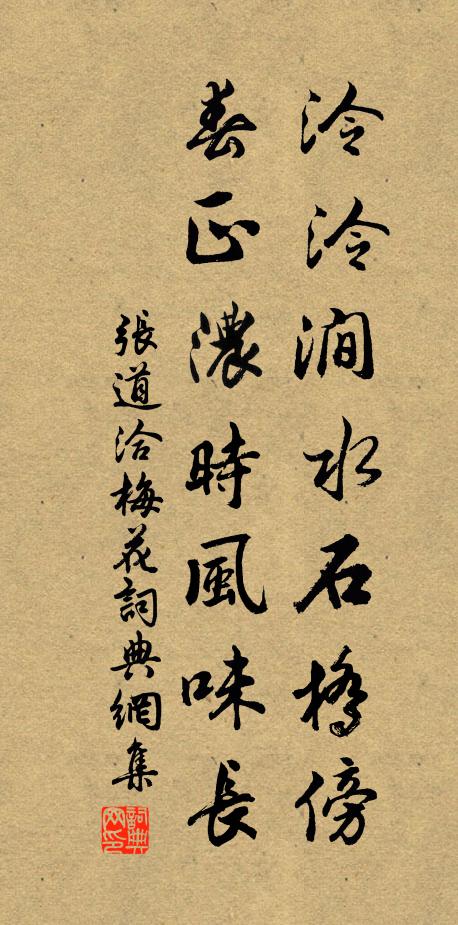 泠泠澗水石橋傍
春正濃時風味長
張道洽梅花詞典網集
詞典网印